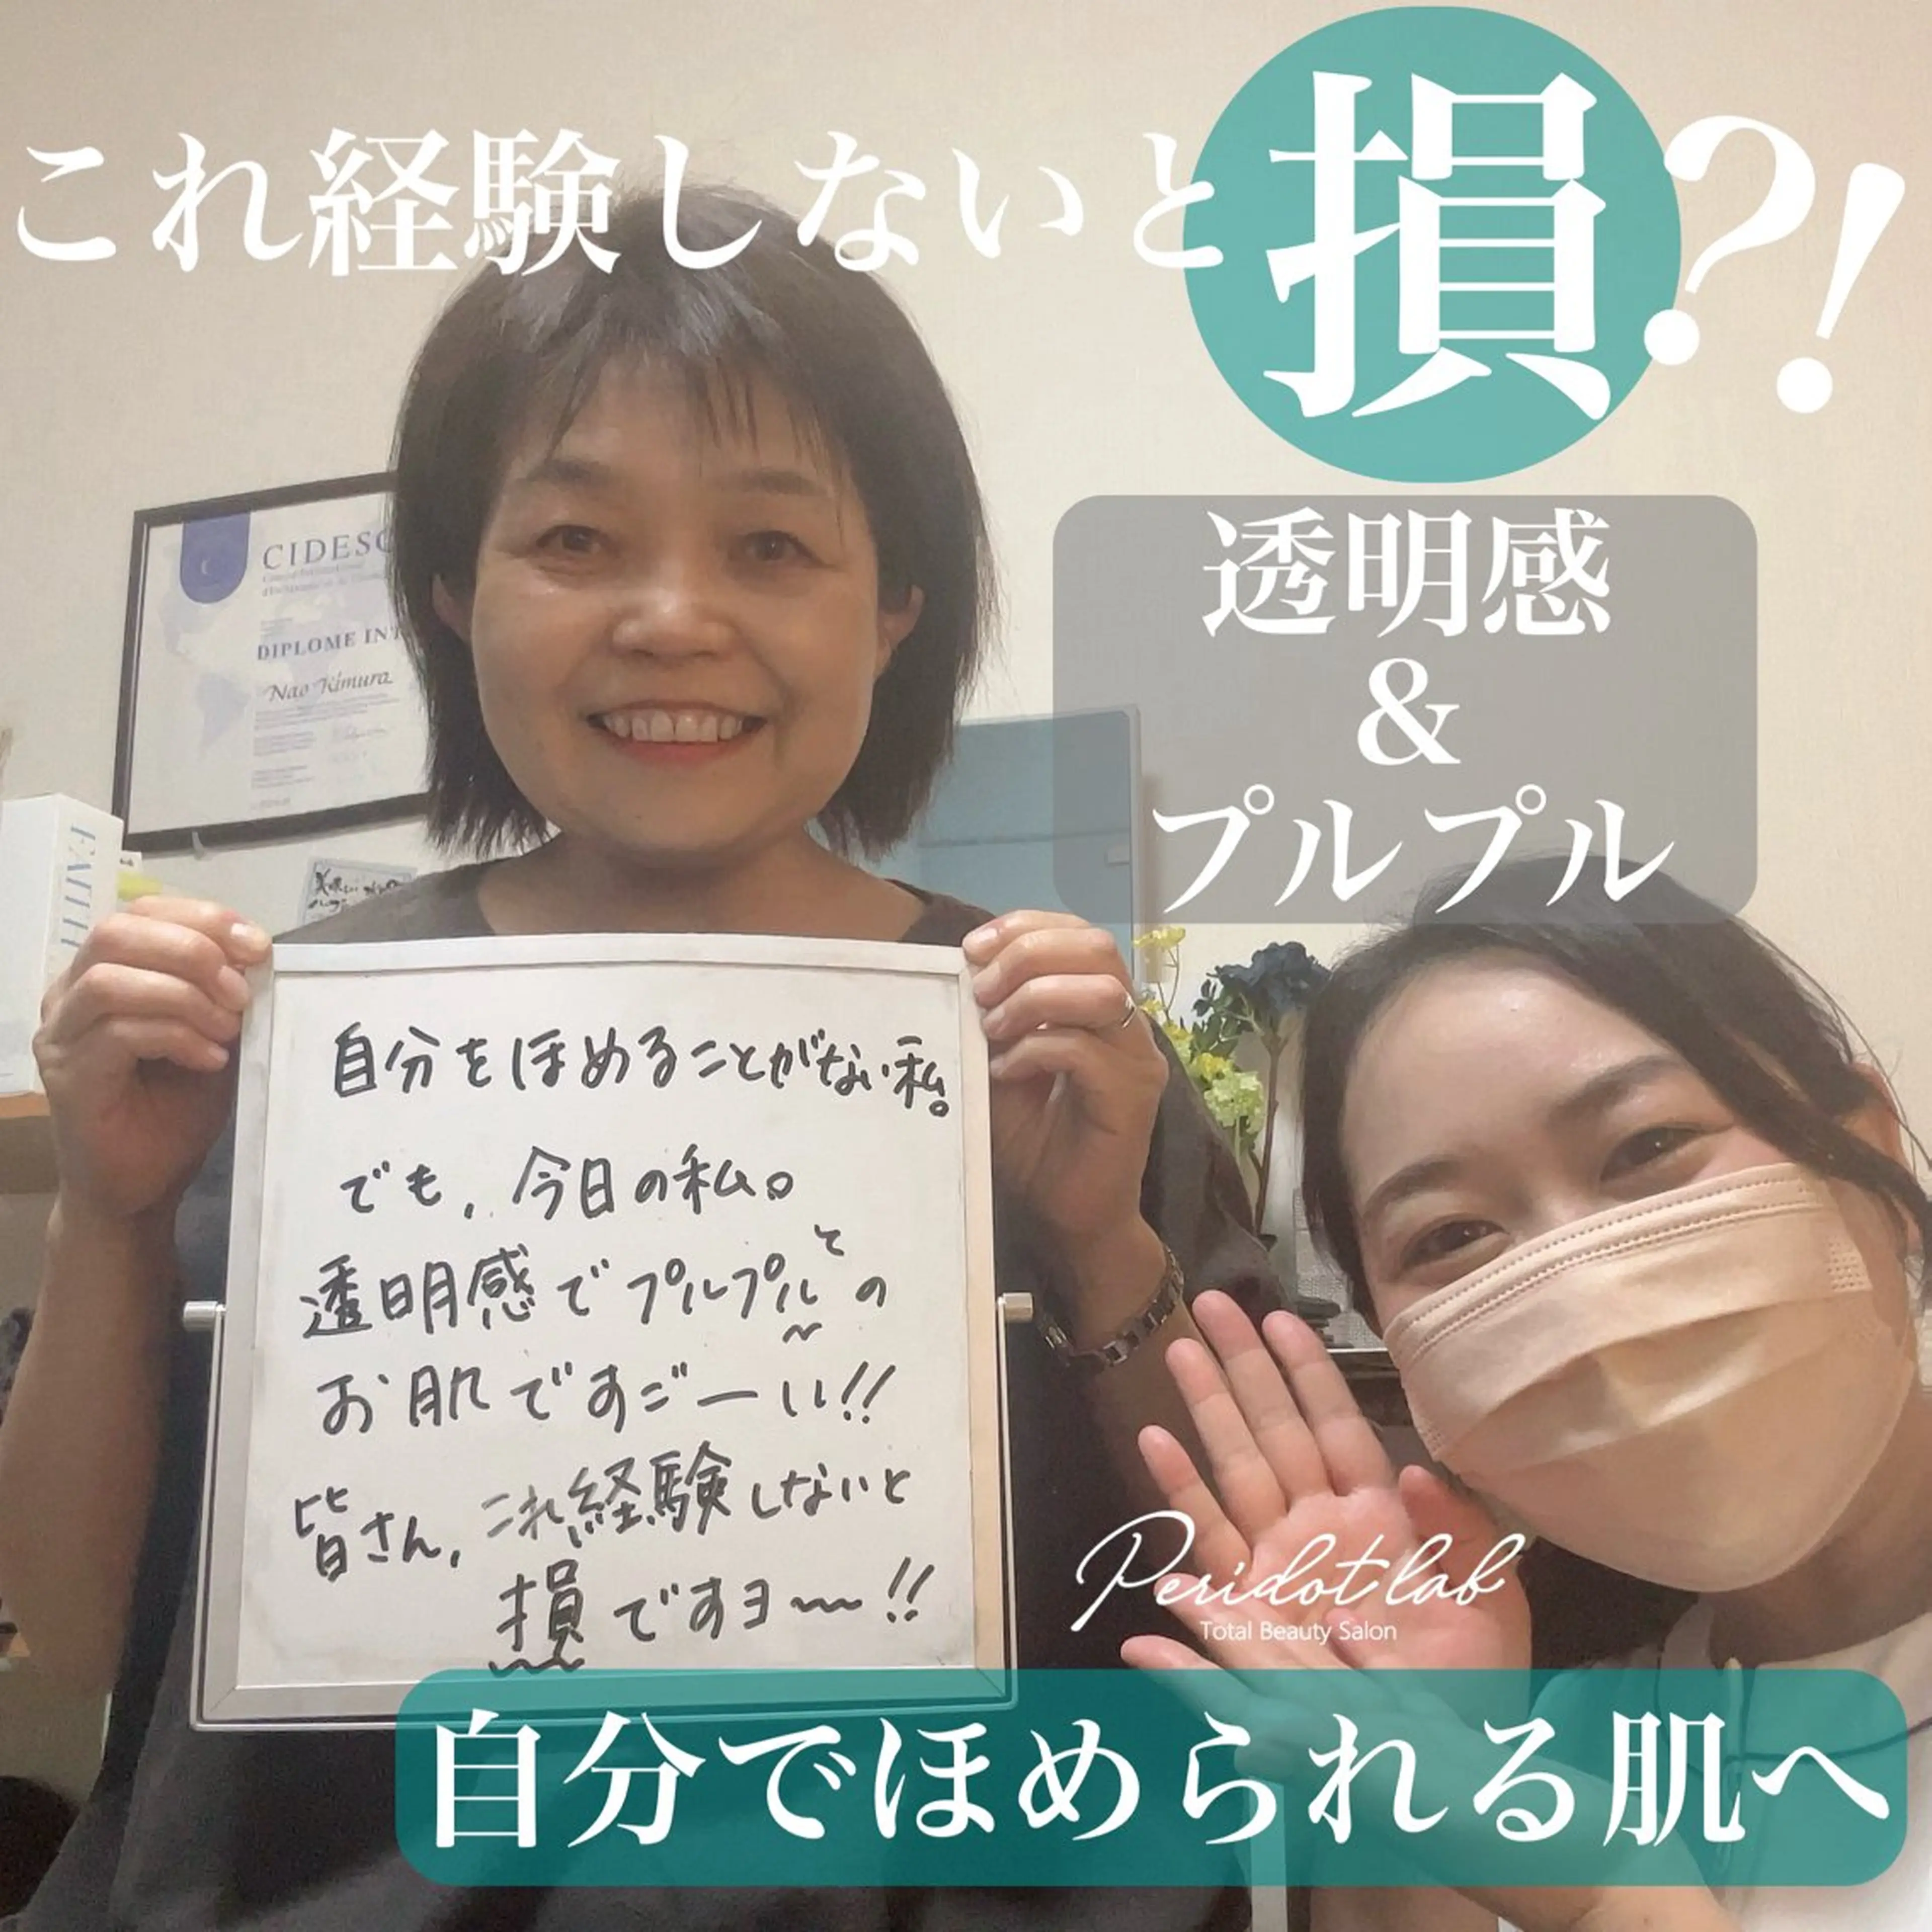 これ経験しないと損?!
透明感
&
プルプル
CIDESC
DIPLOME INT
Nao Kimura
FAITH
自分をほめることがない私。
でも、今日の私。
透明感でプルプルとの
お肌ですごーい!!
皆さん、これ経験しないと
損ですヨ〜!!
Peridot lab
Total Beauty Salon
自分でほめられる肌へ